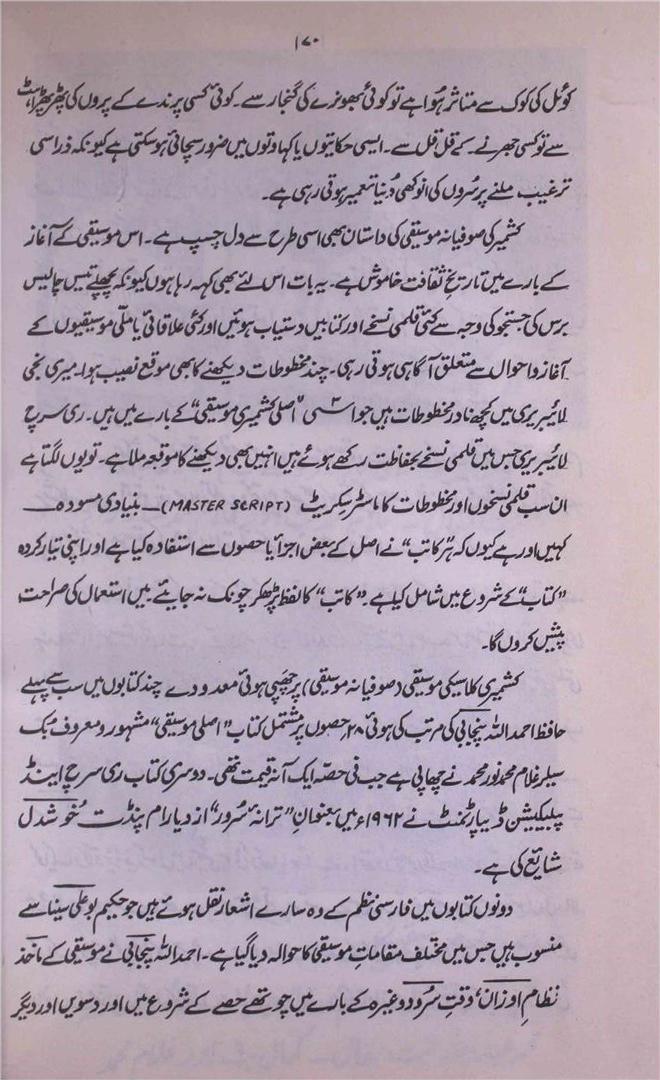 ۱۷۰
کوئل کی کوک سے متاثر ہوا ہے تو کوئی بھونرے کی گنجار سے۔ کوئی کسی پرندے کے پروں کی پھڑپھڑاہٹ
سے تو کسی جھرنے کے قل قل سے۔ ایسی حکایتوں یا کہاوتوں میں ضرور سچائی ہو سکتی ہے کیونکہ ذرا سی
ترغیب ملنے پر سُروں کی انوکھی دُنیا تعمیر ہوتی رہی ہے۔
کشمیر کی صوفیانہ موسیقی کی داستان بھی اسی طرح سے دل چسپ ہے۔ اس موسیقی کے آغاز
کے بارے میں تاریخِ ثقافت خاموش ہے۔ یہ بات اس لئے بھی کہہ رہا ہوں کیونکہ پچھلے تیس چالیس
برس کی جستجو کی وجہ سے کئی قلمی نسخے اور کتابیں دستیاب ہوئیں اور کئی علاقائی یا ملّی موسیقیوں کے
آغاز و احوال سے متعلق آگاہی ہوتی رہی۔ چند مخطوطات دیکھنے کا بھی موقع نصیب ہوا۔ میری نجی
لائبریری میں کچھ نادر مخطوطات ہیں جو اسی "اصلی کشمیری موسیقی" کے بارے میں ہیں۔ ری سرچ
لائبریری جس میں قلمی نسخے بحفاظت رکھے ہوئے ہیں انہیں بھی دیکھنے کا موقعہ ملا ہے۔ تو یوں لگتا ہے
ان سب قلمی نسخوں اور مخطوطات کا ماسٹر سکرپٹ (MASTER SCRIPT) ــ بنیادی مسودہ ــ
کہیں اور ہے کیوں کہ ہر "کاتب" نے اصل کے بعض اجزأ یا حصوں سے استفادہ کیا ہے اور اپنی تیار کردہ
"کتاب" کے شروع میں شامل کیا ہے۔ "کاتب" کا لفظ پڑھکر چونک نہ جایئے میں استعمال کی صراحت
پیش کروں گا۔
کشمیری کلاسیکی موسیقی (صوفیانہ موسیقی) پر چھپی ہوئی معدودے چند کتابوں میں سب سے پہلے
حافظ احمد اللہ پنجابی کی مرتب کی ہوئی ۲۰ حصوں پر مشتمل کتاب "اصلی موسیقی" مشہور و معروف بک
سیلر غلام محمد نور محمد نے چھاپی ہے جب فی حصّہ ایک آنہ قیمت تھی۔ دوسری کتاب ری سرچ اینڈ
پبلیکیشن ڈیپارٹمنٹ نے ۱۹۶۲ء میں بعنوان "ترانہ سُرور" از دیا رام پنڈت خُوشدل
شایع کی ہے۔
دونوں کتابوں میں فارسی نظم کے وہ سارے اشعار نقل ہوئے ہیں جو حکیم بو علی سینا سے
منسوب ہیں جس میں مختلف مقاماتِ موسیقی کا حوالہ دیا گیا ہے۔ احمد اللہ پنجابی نے موسیقی کے ماخذ
نظامِ اوزان، وقتِ سرود و غیرہ کے بارے میں چوتھے حصے کے شروع میں اور دسویں اور دیگر